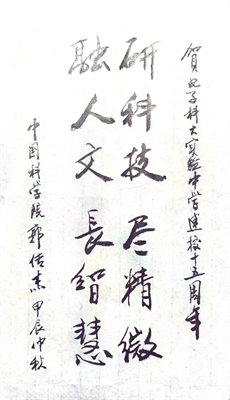 賀电子科大实验中学建校十五周年
研科技 尽精微
融人文 長智慧
中国科学院 郭传杰 甲辰仲秋